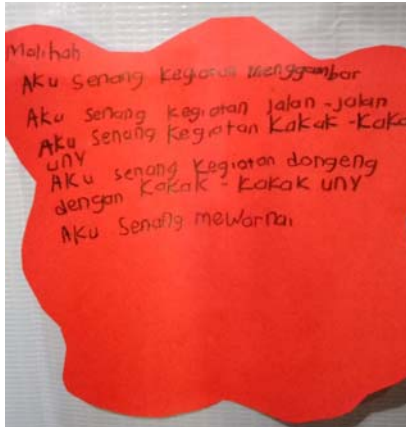 Malihah
Aku senang kegiatan menggambar
Aku senang kegiatan jalan-jalan
Aku senang kegiatan kakak-kaka
uny
Aku senang kegiatan dongeng
dengan kakak-kakak uny
Aku senang mewarnai